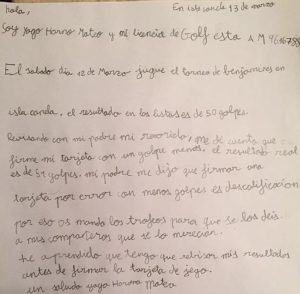 hola, En isla canela 13 de marzo
Soy Yago Horno Mateo y mi licencia de Golf esta A M
El sabado dia 12 de Marzo jugue el torneo de benjamines en
isla canela, el resultado en las listas es de 50 golpes.
Revisando con mi padre mi recorrido, me di cuenta que
firme mi tarjeta con un golpe menos, el resultado real
es de 51 golpes. mi padre me dijo que firmar una
tarjeta por error con menos golpes es descalificacion
por eso os mando los trofeos para que se los deis
a mis compañeros que se lo merecian.
he aprendido que tengo que revisar mis resultados
antes de firmar la tarjeta de juego.
un saludo yago Horno Mateo